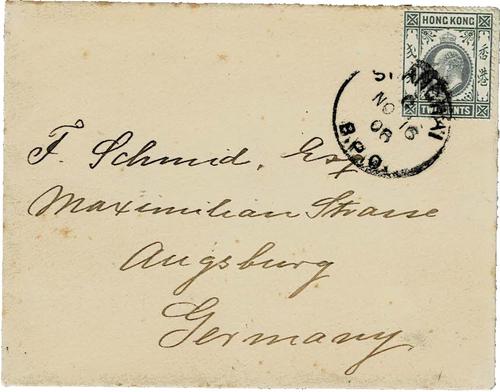 HONG KONG
香港
貳
TWO CENTS
SHANGHAI
C
NO 16
08
B.P.O.
F. Schmid, Esq
Maximilian Strasse
Augsburg
Germany.